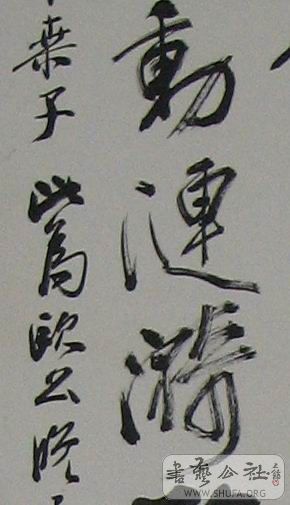 動漣漪
桑子 此為歐公晚
書藝公社
WWW.SHUFA.ORG